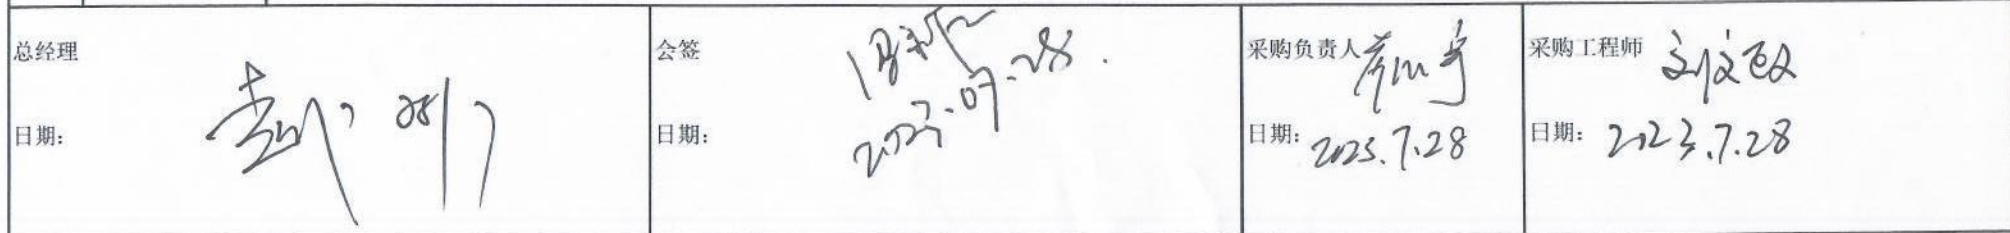 总经理
日期:
会签
2023.07.28.
日期:
采购负责人
日期: 2023.7.28
采购工程师 刘文政
日期: 2023.7.28